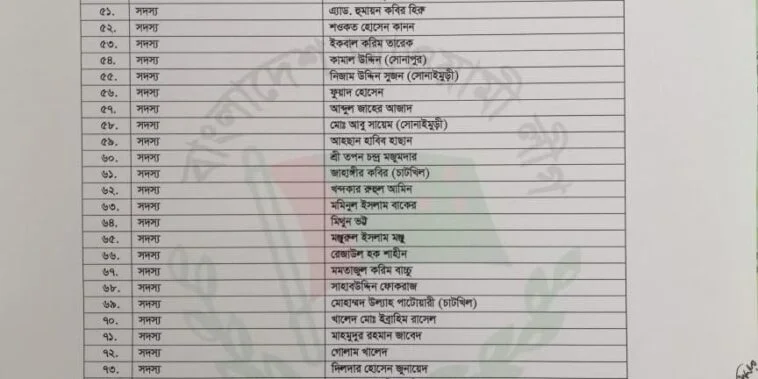 ৫১. সদস্য এ্যাড. হুমায়ন কবির হিরু
৫২. সদস্য শওকত হোসেন কানন
৫৩. সদস্য ইকবাল করিম তারেক
৫৪. সদস্য কামাল উদ্দিন (সোনাপুর)
৫৫. সদস্য নিজাম উদ্দিন সুজন (সোনাইমুড়ী)
৫৬. সদস্য ফুয়াদ হোসেন
৫৭. সদস্য আব্দুল জাহের আজাদ
৫৮. সদস্য মোঃ আবু সায়েম (সোনাইমুড়ী)
৫৯. সদস্য আহছান হাবিব হাছান
৬০. সদস্য শ্রী তপন চন্দ্র মজুমদার
৬১. সদস্য জাহাঙ্গীর কবির (চাটখিল)
৬২. সদস্য খন্দকার রুহুল আমিন
৬৩. সদস্য মমিনুল ইসলাম বাকের
৬৪. সদস্য মিথুন ভট্ট
৬৫. সদস্য মঞ্জুরুল ইসলাম মঞ্জু
৬৬. সদস্য রেজাউল হক শাহীন
৬৭. সদস্য মমতাজুল করিম বাচ্চু
৬৮. সদস্য সাহাবউদ্দিন ফোকরাজ
৬৯. সদস্য মোহাম্মদ উল্যাহ পাটোয়ারী (চাটখিল)
৭০. সদস্য খালেদ মোঃ ইব্রাহিম রাসেল
৭১. সদস্য মাহমুদুর রহমান জাবেদ
৭২. সদস্য গোলাম খালেদ
৭৩. সদস্য দিলদার হোসেন জুনায়েদ
বাংলাদেশ আওয়ামী লীগ